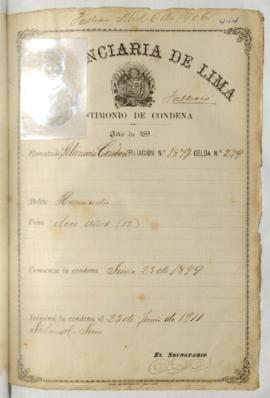 Falleció Abril 6 de 1906.
NCIARIA DE LIMA
Falleció
TESTIMONIO DE CONDENA
Año de 189
Rematado FILIACION N.º 1877 CELDA N.º 279
Delito Homicidio
Pena doce años (12)
Comienza la condena Junio 23 de 1899
Termina la condena el 23 de Junio de 1911
EL SECRETARIO